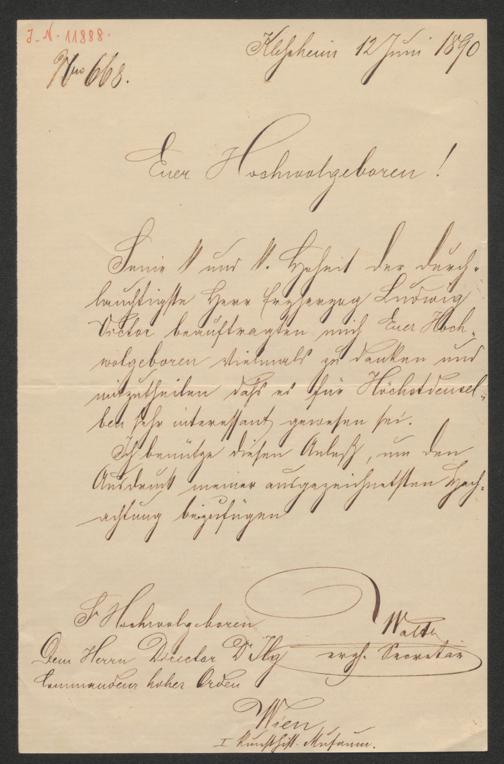 J. N. 11888.
Nro 668.
Klessheim 12 Juni 1890
Euer Hochwolgeboren!
Seine k und k. Hoheit der durch-
lauchtigste Herr Erzherzog Ludwig
Victor beauftragten mich Euer Hoch-
wolgeboren vielmals zu danken und
mitzutheilen daß es für Höchstdensel-
ben sehr interessant gewesen sei.
Ich benütze diesen Anlaß, um den
Ausdruck meiner ausgezeichnetsten Hoch-
achtung beizufügen
Sr Hochwolgeboren
Dem Herrn Director Dr Ilg
Commandeur hoher Orden
erzh. Secretär
Wien
I kunsthist. Museum.